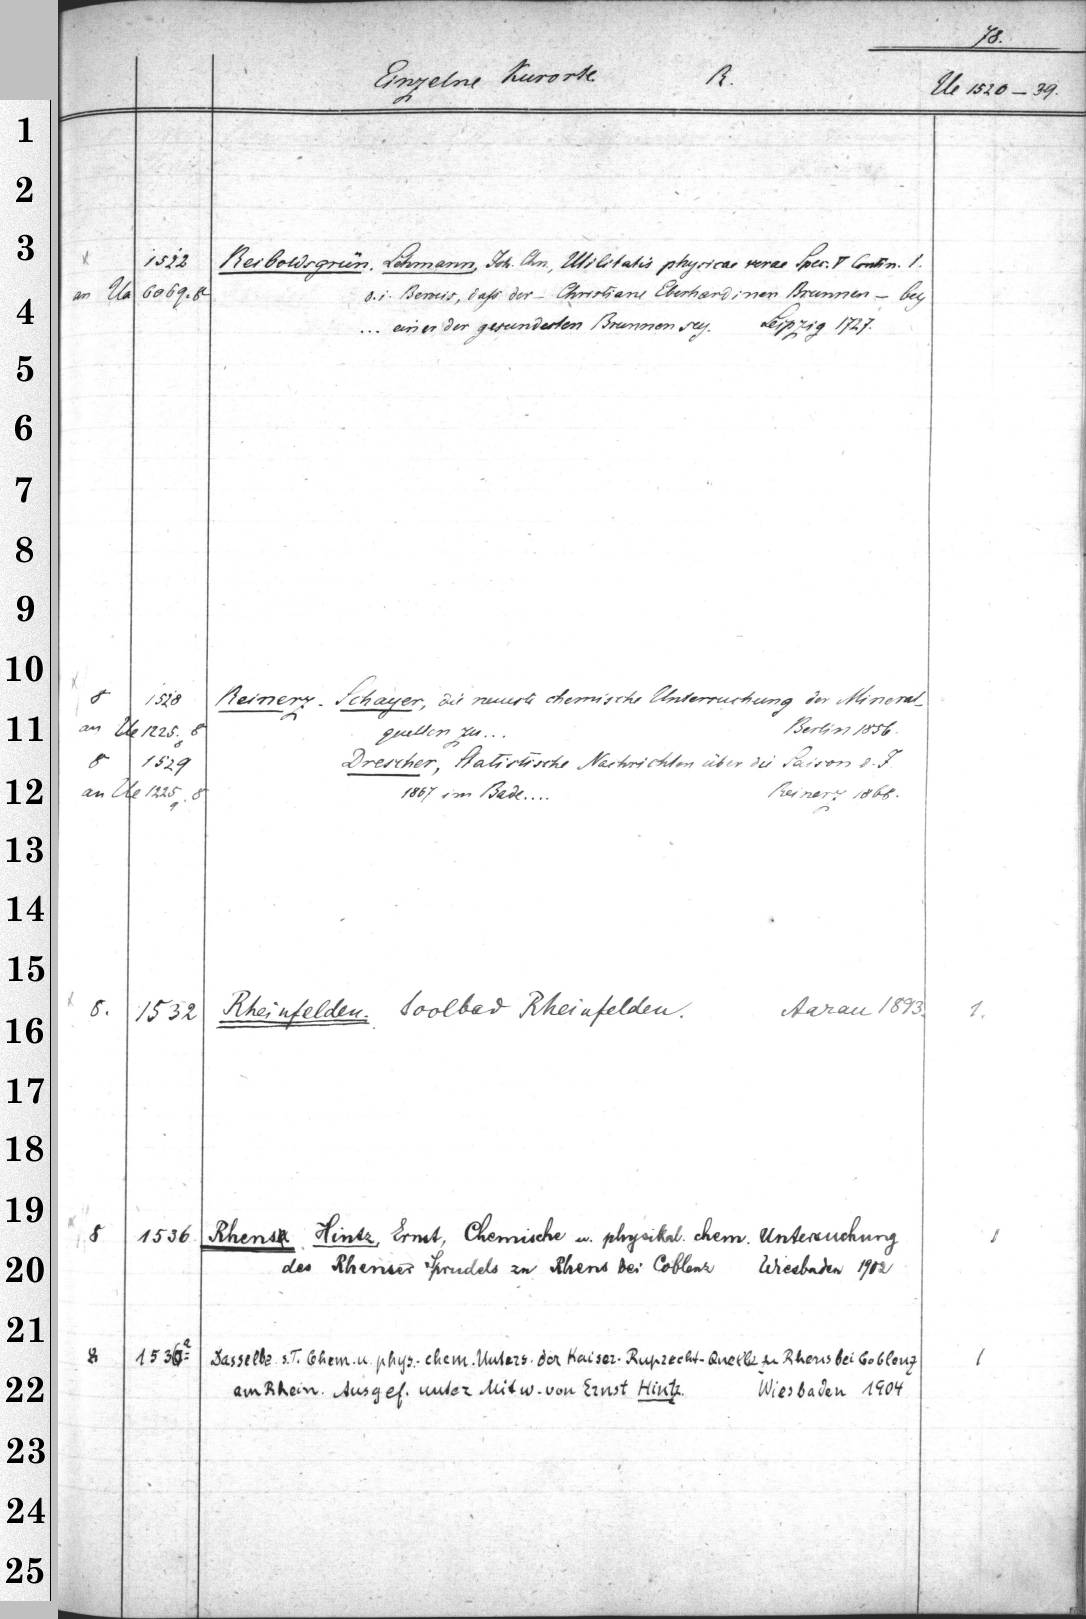 78.
Einzelne Kurorte R. Ue 1520 – 39.
1
2
3
x 1522 Reiboldsgrün. Lehmann, Joh. Chn., Utilitatis physicae verae Spec. V Contin. 1.
an Ua 6069. 8 d. i. Beweis, daß der – Christiane Eberhardinen Brunnen – bey
4
... einer der gesundesten Brunnen sey. Leipzig 1727.
5
6
7
8
9
10
8 1528 Reinerz. Schayer, die neueste chemische Untersuchung der Mineral-
11
an Ue 1225. 8 quellen zu ... Berlin 1856.
8 1529 Drescher, Statistische Nachrichten über die Saison d. J.
12
an Ue 1225. 8 1867 im Bade.... Reinerz 1868.
13
14
15
x 8. 1532 Rheinfelden. Soolbad Rheinfelden. Aarau 1893. 1.
16
17
18
19
x 8 1536 Rhens. Hintz, Ernst, Chemische u. physikal. chem. Untersuchung 1
20
des Rhenser Sprudels zu Rhens bei Coblenz Wiesbaden 1902
21
8 1536a Dasselbe s.T. Chem. u. phys.-chem. Unters. der Kaiser-Ruprecht-Quelle zu Rhens bei Coblenz 1
22
am Rhein. Ausgef. unter Mitw. von Ernst Hintz. Wiesbaden 1904
23
24
25